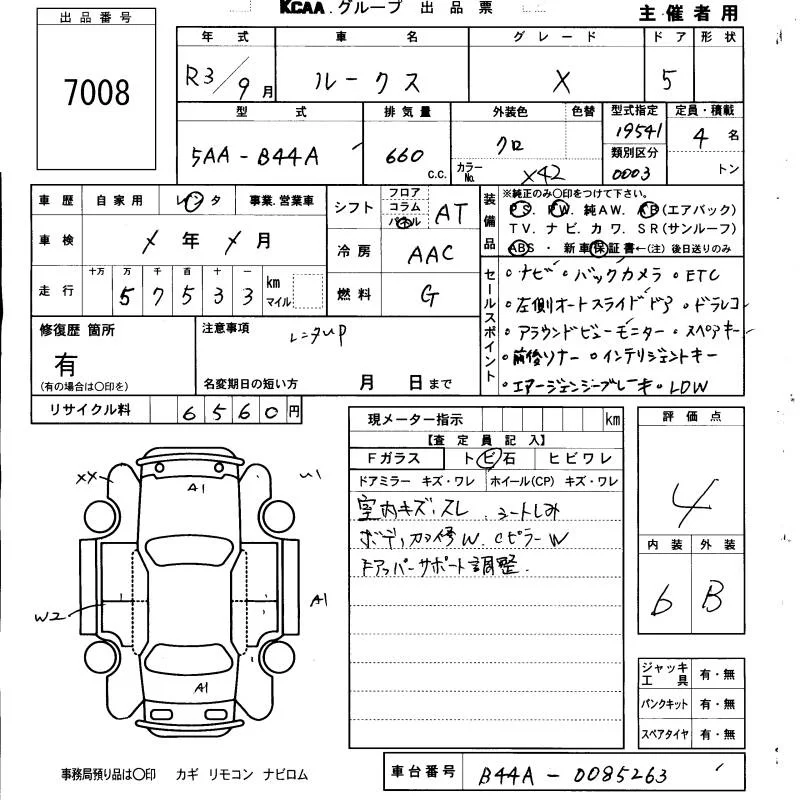 KCAA.グループ 出品票
主催者用
出品番号
7008
年式 車名 グレード ドア 形状
R3/9月 ルークス X 5
型式 排気量 外装色 色替 型式指定 定員・積載
5AA-B44A 660 c.c. クロ 19541 4名
カラーNo. X42 類別区分 0003 トン
車歴 自家用 レンタ 事業.営業車
車検 年 月
走行 十万 万 千 百 十 一 km マイル
5 7 5 3 3
シフト フロア コラム パネル AT
冷房 AAC
燃料 G
装備品
※純正のみ〇印をつけて下さい。
PS. PW. 純AW. AB(エアバック)
TV. ナビ. カワ. SR(サンルーフ)
ABS ・ 新車保証書←(注) 後日送りのみ
セールスポイント
・ナビ ・バックカメラ ・ETC
・左側オートスライドドア ・ドラレコ
・アラウンドビューモニター ・スペアキー
・前後ソナー ・インテリジェントキー
・エマージェンシーブレーキ ・LDW
修復歴 箇所
有
(有の場合は〇印を)
注意事項
レンタup
名変期日の短い方 月 日まで
リサイクル料 6560円
現メーター指示 km
【査定員記入】
Fガラス トビ石 ヒビワレ
ドアミラー キズ・ワレ ホイール(CP) キズ・ワレ
室内キズ.スレ .シートしみ
Cピラー W
ドアッパーサポート調整.
評価点
4
内装 外装
6 B
ジャッキ工具 有・無
パンクキット 有・無
スペアタイヤ 有・無
XX
A1
U1
W2
A1
A1
事務局預り品は〇印 カギ リモコン ナビロム
車台番号 B44A-0085263